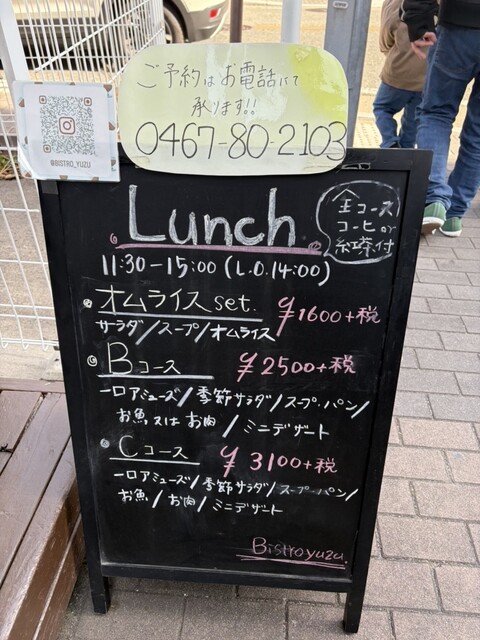 ご予約はお電話にて
承ります!!
0467-80-2103
@BISTRO_YUZU
Lunch
全コース
コーヒor
紅茶付
11:30-15:00 (L.O.14:00)
オムライス set. ¥1600+税
サラダ/スープ/オムライス
Bコース ¥2500+税
一口アミューズ/季節サラダ/スープ・パン/
お魚又はお肉/ミニデザート
Cコース ¥3100+税
一口アミューズ/季節サラダ/スープ・パン/
お魚/お肉/ミニデザート
Bistro yuzu.